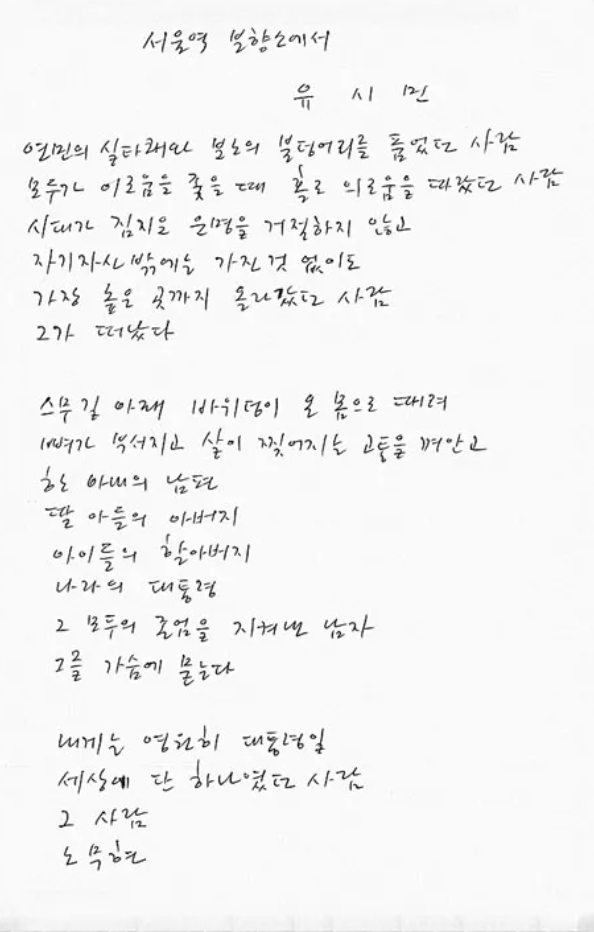 서울역 분향소에서
유 시 민
연민의 실타래와 분노의 불덩어리를 품었던 사람
모두가 이로움을 좇을 때 홀로 의로움을 따랐던 사람
시대가 짐지은 운명을 거절하지 않고
자기자신밖에는 가진것 없이도
가장 높은 곳까지 올라갔던 사람
그가 떠났다
스무길 아래 바위덩이 온 몸으로 때려
뼈가 부서지고 살이 찢어지는 고통을 껴안고
한 아내의 남편
딸 아들의 아버지
아이들의 할아버지
나라의 대통령
그 모두의 존엄을 지켜낸 남자
그를 가슴에 묻는다
내게는 영원히 대통령일
세상에 단 하나였던 사람
그 사람
노무현